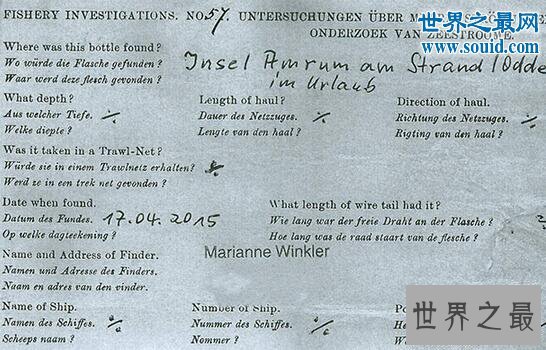 FISHERY INVESTIGATIONS. NO. 57. UNTERSUCHUNGEN ÜBER M
ONDERZOEK VAN ZEESTROOME
世界之最
www.souid.com
Where was this bottle found?
Wo würde die Flasche gefunden?
Waar werd deze flesch gevonden?
Insel Amrum am Strand (Odde
im Urlaub
What depth? Length of haul? Direction of haul.
Aus welcher Tiefe. Dauer des Netzzuges. Richtung des Netzzuges.
Welke diepte? Lengte van den haal? Rigting van den haal?
Was it taken in a Trawl-Net?
Würde sie in einem Trawlnetz erhalten?
Werd ze in een trek net gevonden?
Date when found. What length of wire tail had it?
Datum des Fundes. 17.04.2015 Wie lang war der freie Draht an der Flasche?
Op welke dagteekening? Hoe lang was de raad staart van de flesche?
Name and Address of Finder. Marianne Winkler
Namen und Adresse des Finders.
Naam en adres van den vinder.
Name of Ship. Number of Ship. Po
Namen des Schiffes. Nummer des Schiffes. He
Scheeps naam? Nommer?
世界之最